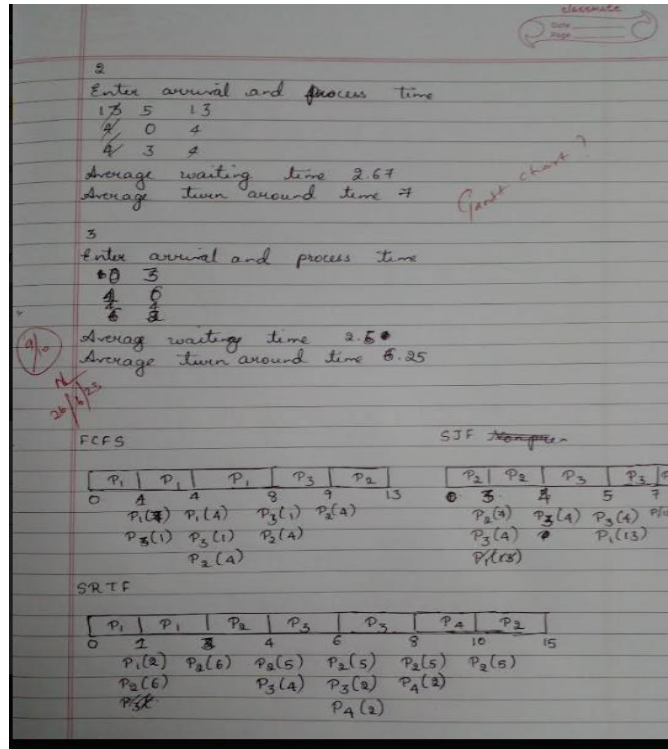 classmate
Date
Page
2
Enter arrival and process time
13 5 13
4 0 4
4 3 4
Average waiting time 2.67
Average turn around time 7
Gantt chart?
3
Enter arrival and process time
0 3
Average waiting time 2.5
Average turn around time 6.25
9/10
26/6/23
FCFS
SJF
P₁ P₁ P₁ P₃ P₂
0 1 4 8 9 13
P₁(7) P₁(4) P₃(1) P₂(4)
P₃(1) P₃(1) P₂(4)
P₂(4)
P₂ P₂ P₃ P₃
0 3 4 5 7
P₂(4) P₃(4) P₃(4)
P₃(4) P₁(13)
P₁(13)
SRTF
P₁ P₁ P₂ P₃ P₃ P₄ P₂
0 1 3 4 6 8 10 15
P₁(2) P₂(6) P₂(5) P₂(5) P₂(5) P₂(5)
P₂(6) P₃(4) P₃(2) P₄(2)
P₄(2)